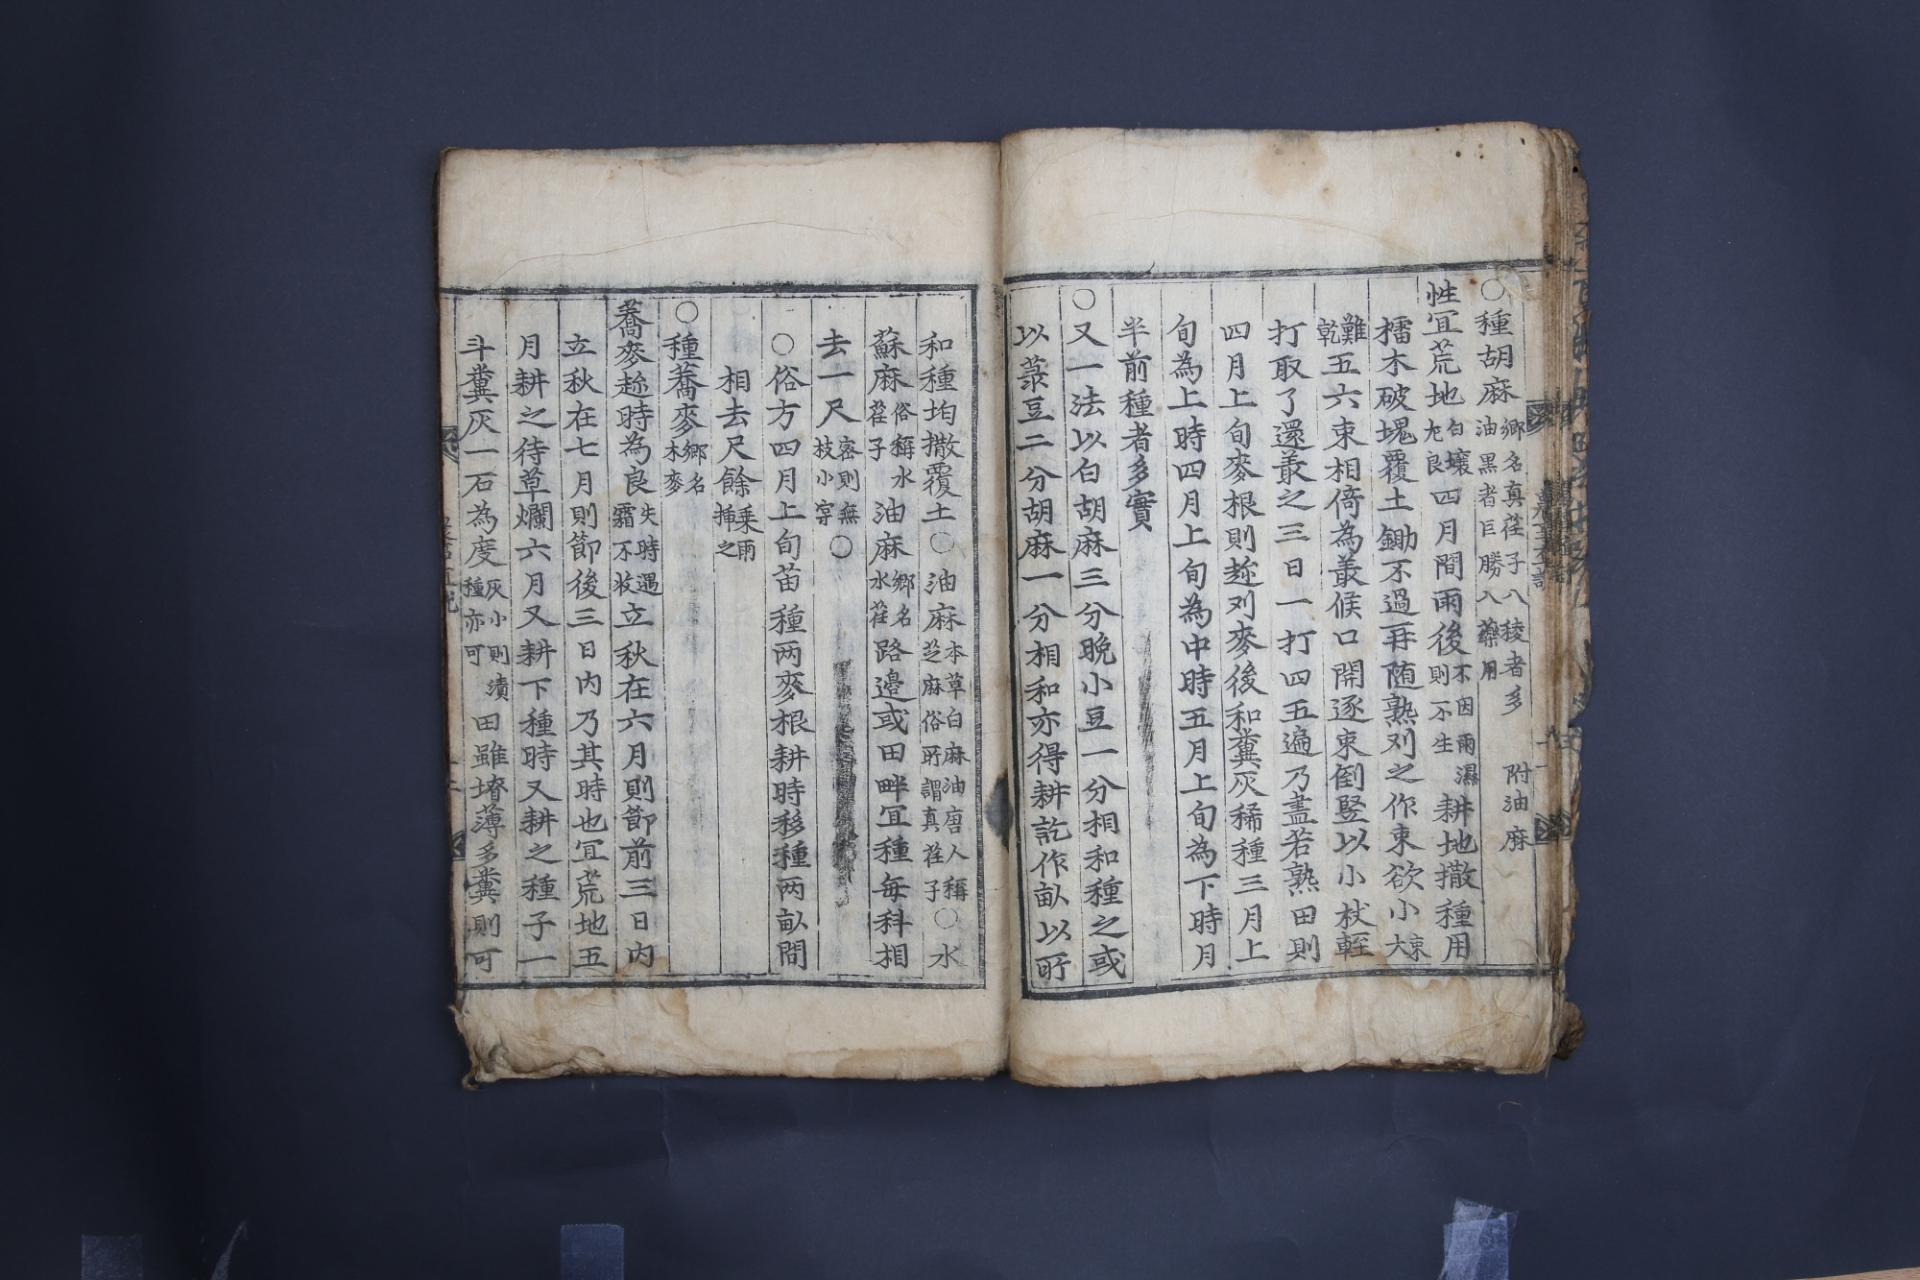 ○種胡麻鄕名真荏子八稜者多油黒者巨勝入藥用附油麻
性冝荒地白壤尤良四月間雨後不因雨濕則不生耕地撒種用
檑木破塊覆土鋤不過再随熟刈之作束欲小束大
難乾五六束相倚為叢候口開逐束倒竪以小杖輕
打取了還叢之三日一打四五遍乃盡若熟田則
四月上旬麥根則趂刈麥後和糞灰稀種三月上
旬為上時四月上旬為中時五月上旬為下時月
半前種者多實
○又一法以白胡麻三分晩小豆一分相和種之或
以菉豆二分胡麻一分相和亦得耕訖作畝以所
和種均撒覆土○油麻本草白麻油唐人稱芝麻俗所謂真荏子○水
蘇麻俗稱水荏子油麻鄕名水荏路邊或田畔冝種每科相
去一尺密則無枝小字○
○俗方四月上旬苗種两麥根耕時移種两畝間
相去尺餘乗雨揷之
○種蕎麥鄕名木麥
蕎麥趂時為良失時遇霜不枝立秋在六月則節前三日内
立秋在七月則節後三日内乃其時也冝荒地五
月耕之待草爛六月又耕下種時又耕之種子一
斗糞灰一石為度灰小則漬種亦可田雖塉薄多糞則可